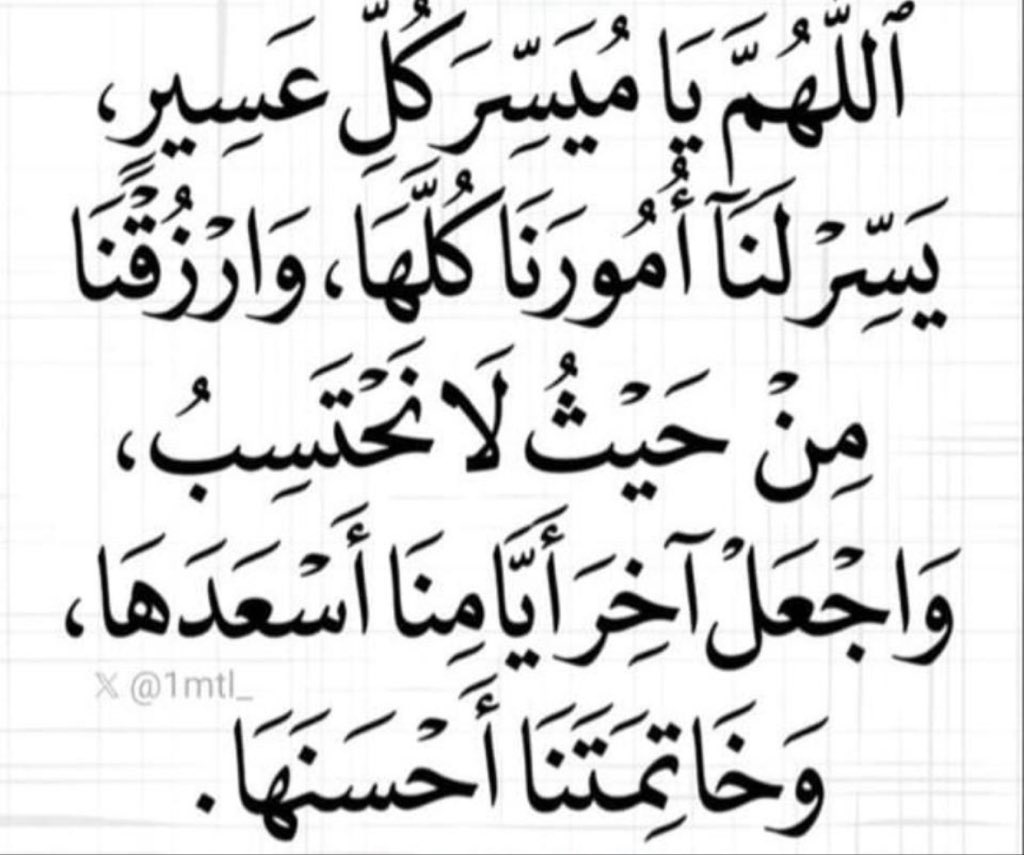 ٱللَّهُمَّ يَا مُيَسِّرَ كُلِّ عَسِيرٍ،
يَسِّرْ لَنَآ أُمُورَنَا كُلَّهَا، وَارْزُقْنَا
مِنْ حَيْثُ لَا نَحْتَسِبُ،
وَاجْعَلْ آخِرَ أَيَّامِنَا أَسْعَدَهَا،
𝕏 @1mtl_
وَخَاتِمَتَنَا أَحْسَنَهَا.